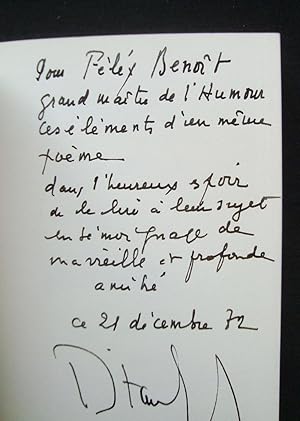 Pour Félix Benoît
grand maître de l'Humour
ces éléments d'un même
poème
dans l'heureux espoir
de le lui à leur sujet
en témoignage de
ma vieille et profonde
amitié
ce 21 décembre 72